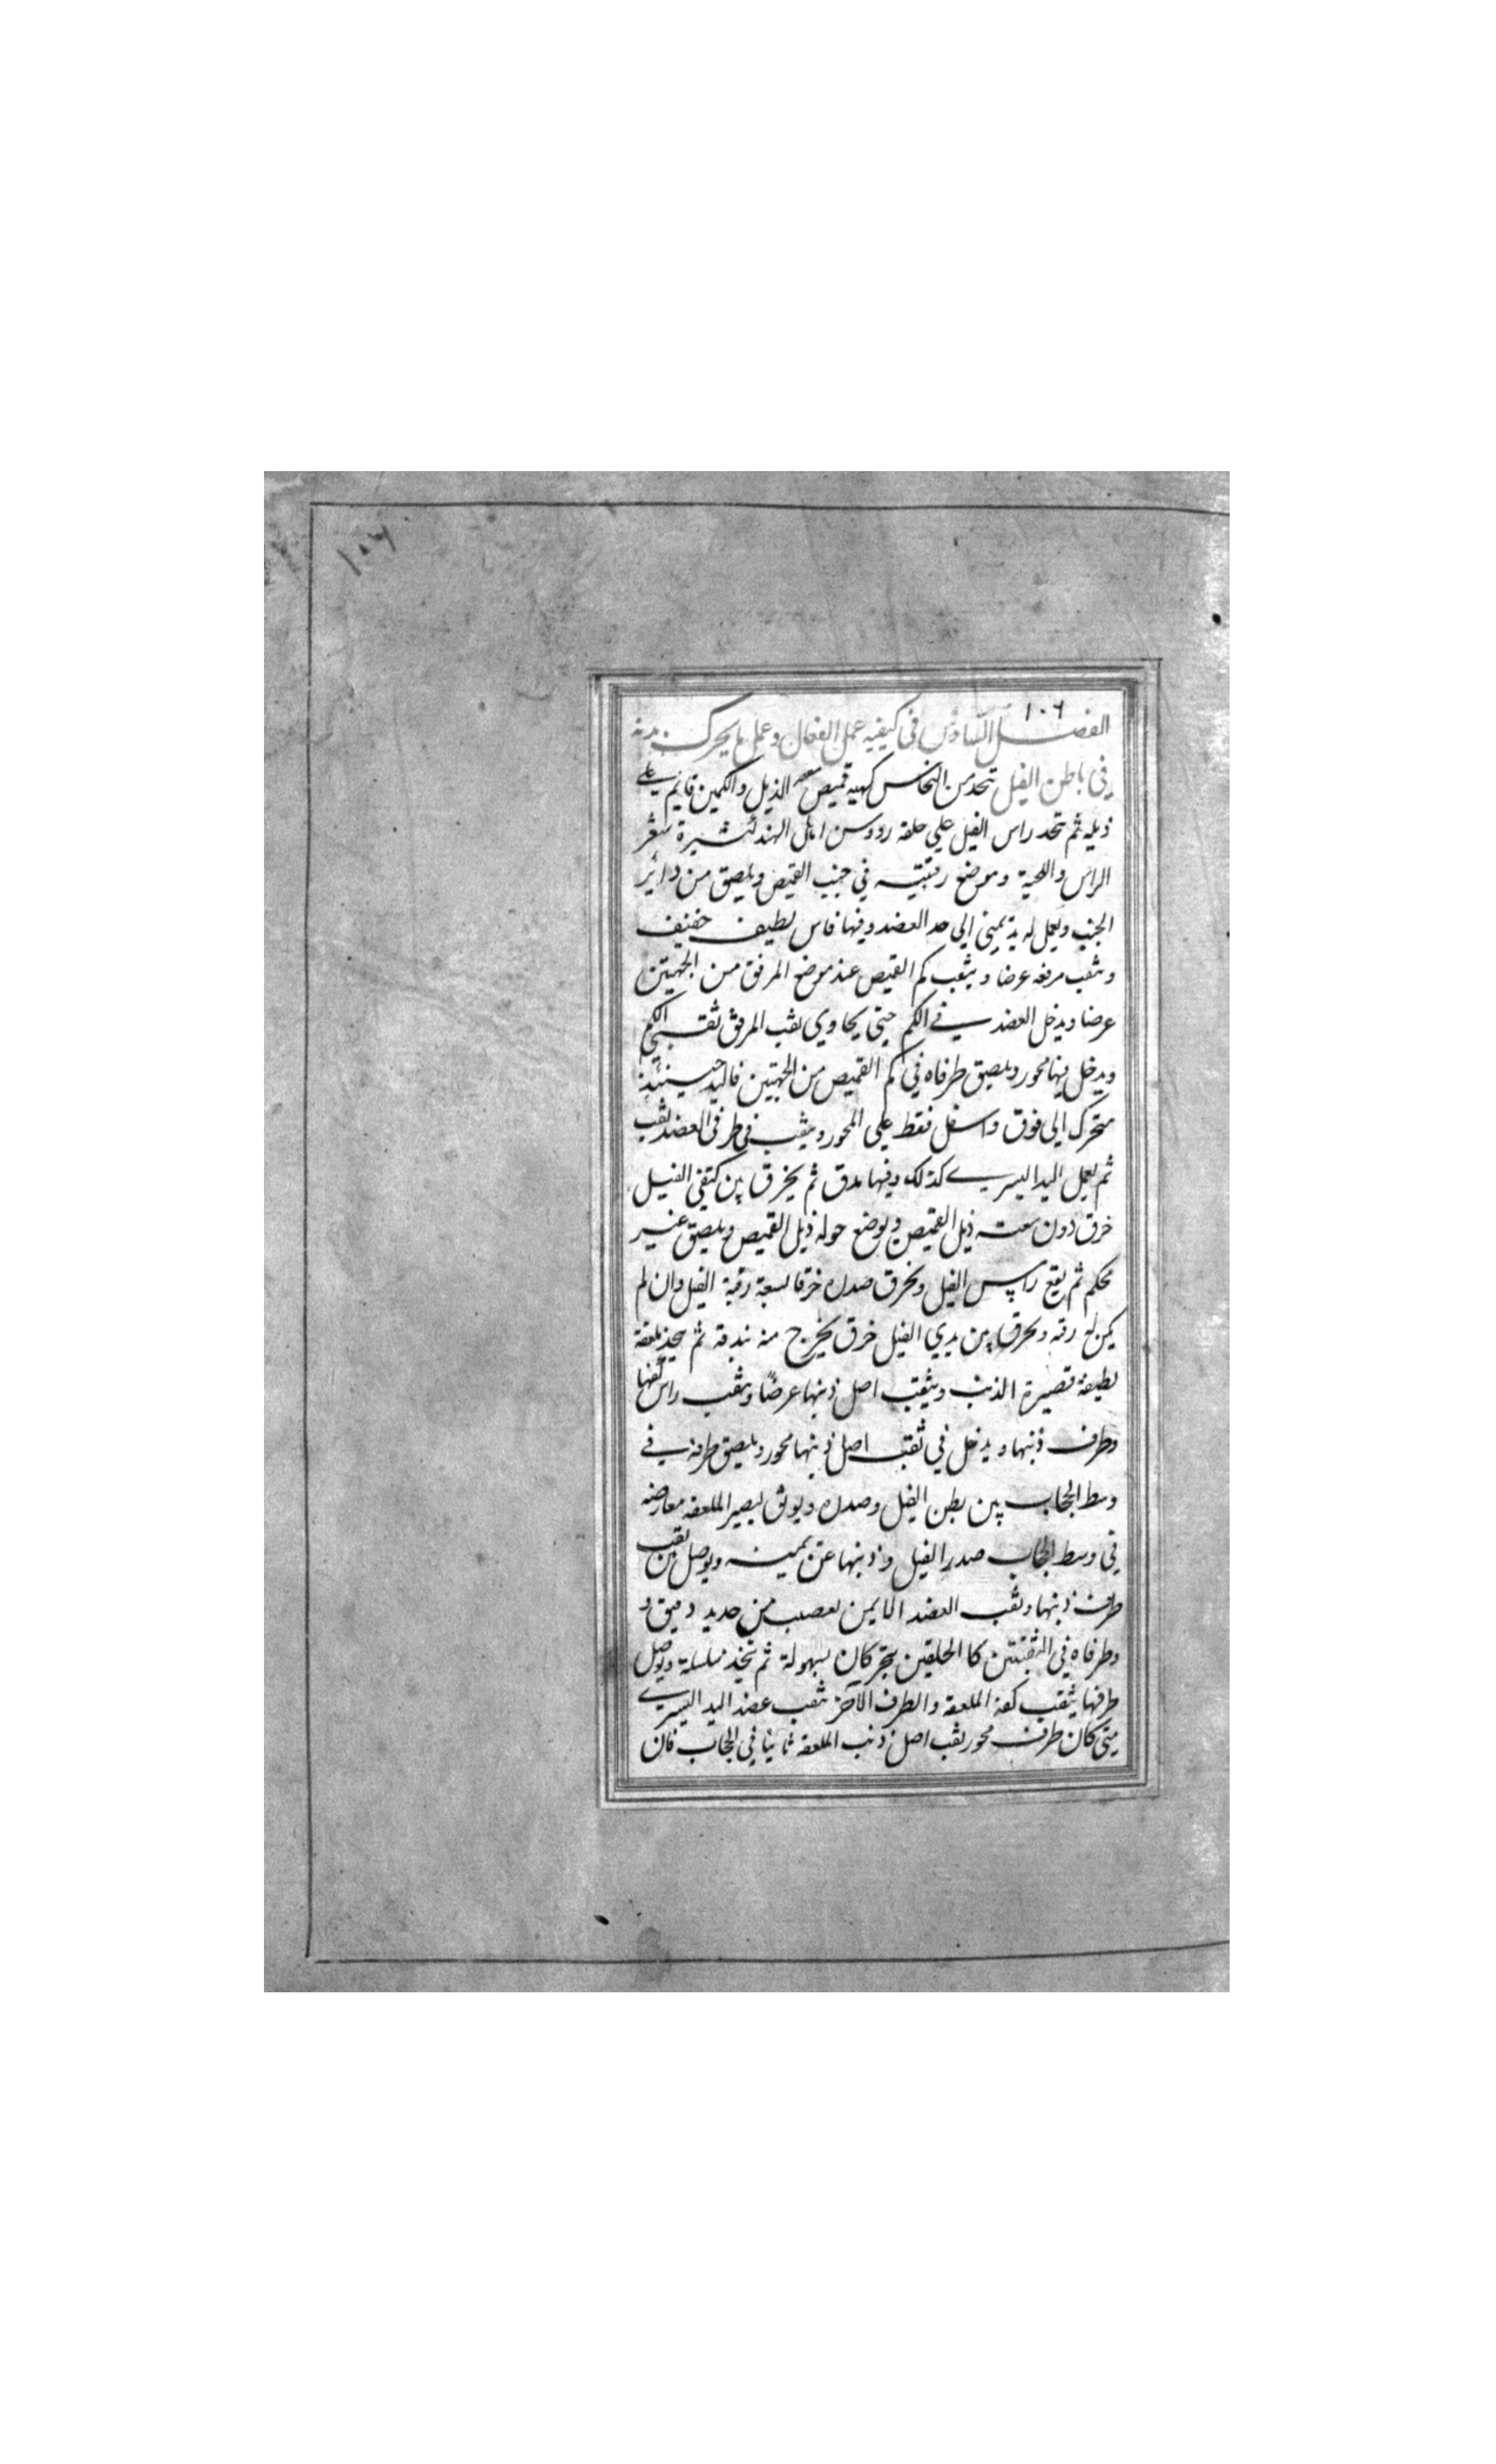 ١٠٦
١٠٦
الفصل السادس في كيفيه عمل الفعال وعمل ما يحرك بدنه
في باطن الفيل تتخذ من النحاس كهيه قميص سعه الذيل والكمين قايم على
ذيله ثم تتخذ راس الفيل على حلقه رووس اهل الهند كثيرة شعر
الراس واللحية وموضع رقبته في جنب القميص ويلصق من دائر
الجنب ويعمل له يد يمنى الى حد العضد وفيها فاس لطيف خفيف
وثقب مرفقه عرضا ويثقب كم القميص عند موضع المرفق من الجهتين
عرضا ويدخل العضد في الكم حتى يحاوي ثقب المرفق ثقبتي الكم
ويدخل فيها محور ويلصق طرفاه في كم القميص من الجهتين فاليد حينئذ
متحرك الى فوق واسفل فقط على المحور ويثقب في طرفي العضد ثقب
ثم يعمل اليد اليسرى كذلك وفيها مدق ثم يخرق بين كتفي الفيل
خرق دون سعته ذيل القميص ويوضع حوله ذيل القميص ويلصق غير
محكم ثم يقع راس الفيل ويخرق صدره خرقا لسعة رقبة الفيل وان لم
يكن له رقبه ويخرق بين يدي الفيل خرق يخرج منه بندقة ثم يتخذ ملعقة
لطيفة قصيرة الذنب ويثقب اصل ذنبها عرضًا ويثقب راس كفها
وطرف ذنبها ويدخل في ثقب اصل ذنبها محور ويلصق طرفه في
وسط الحجاب بين بطن الفيل وصدره ويوثق ليصير الملعقه معارضه
في وسط الحجاب صدر الفيل وذنبها عن يمينه ويوصل من ثقب
طرف ذنبها وثقب العضد الايمن لعصب من حديد دقيق و
وطرفاه في الثقبتين كا الحلقين يتحركان بسهولة ثم تتخذ سلسلة ويوصل
طرفها بثقب كفة الملعقة والطرف الآخر بثقب عضد اليد اليسرى
متى كان طرف محور ثقب اصل ذنب الملعقه ثابتا في الحجاب فان